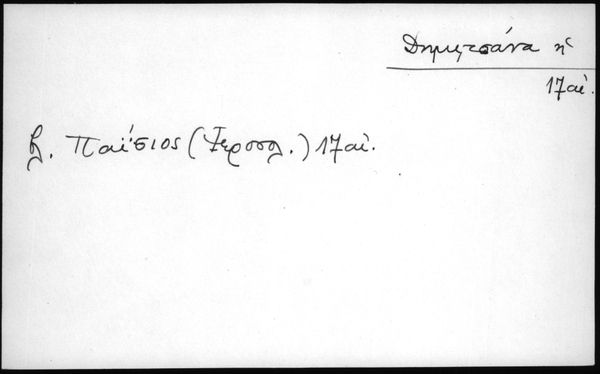 Δημητσάνα ἡ
17 αἰ.
βλ. Παΐσιος (Ἱεροσολ.) 17 αἰ.